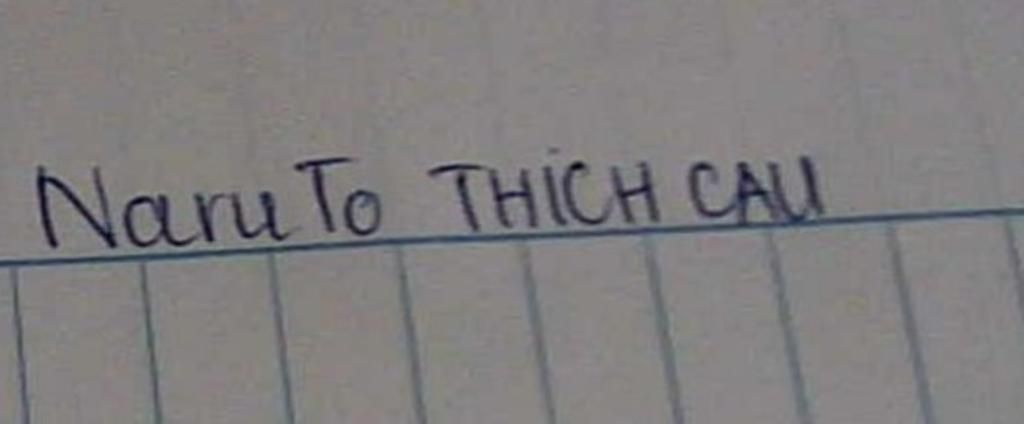 NaruTo THiCH CAU